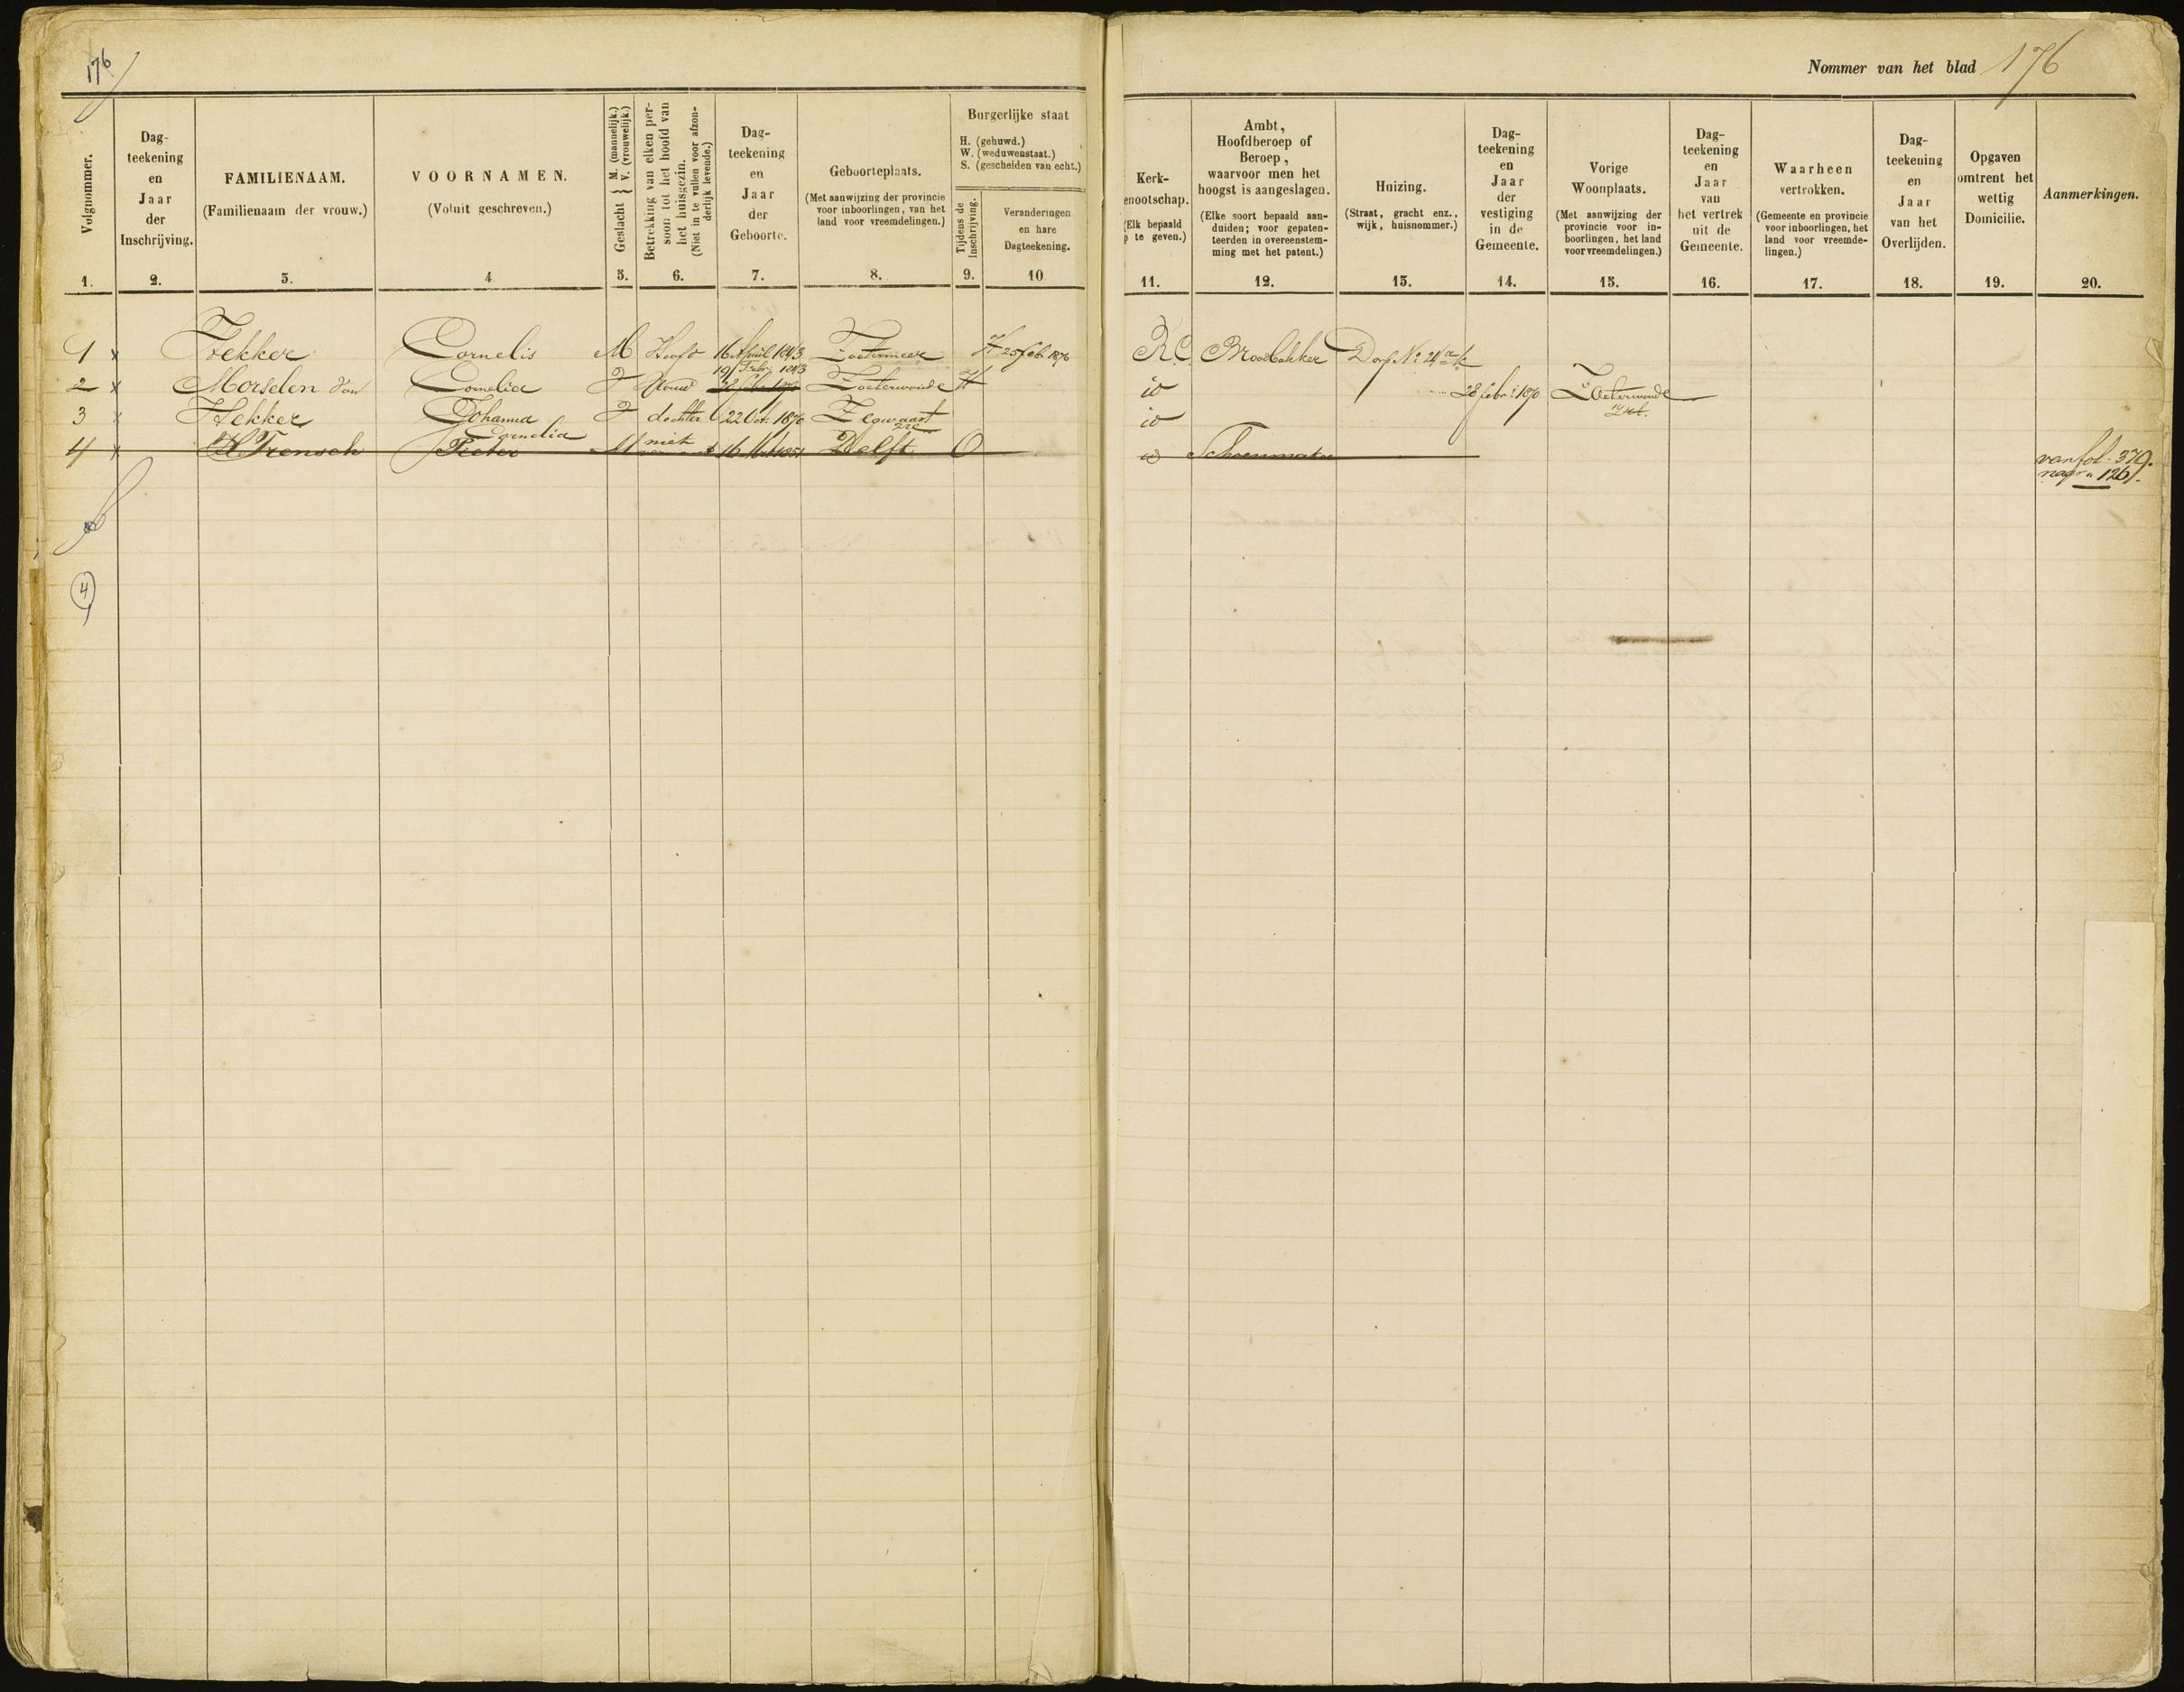 176
Nommer van het blad 176
Volgnommer.
1.
Dag-
teekening
en
Jaar
der
Inschrijving.
2.
FAMILIENAAM.
(Familienaam der vrouw.)
3.
VOORNAMEN.
(Voluit geschreven.)
4
Geslacht { M. (mannelijk.) V. (vrouwelijk.)
5.
Betrekking van elken per-
soon tot het hoofd van
het huisgezin.
(Niet in te vullen voor afzon-
derlijk levende.)
6.
Dag-
teekening
en
Jaar
der
Geboorte.
7.
Geboorteplaats.
(Met aanwijzing der provincie
voor inboorlingen, van het
land voor vreemdelingen.)
8.
Burgerlijke staat
H. (gehuwd.)
W. (weduwenstaat.)
S. (gescheiden van echt.)
Tijdens de
Inschrijving.
9.
Veranderingen
en hare
Dagteekening.
10
Kerk-
enootschap.
(Elk bepaald
p te geven.)
11.
Ambt,
Hoofdberoep of
Beroep,
waarvoor men het
hoogst is aangeslagen.
(Elke soort bepaald aan-
duiden; voor gepaten-
teerden in overeenstem-
ming met het patent.)
12.
Huizing.
(Straat, gracht enz.,
wijk, huisnommer.)
13.
Dag-
teekening
en
Jaar
der
vestiging
in de
Gemeente.
14.
Vorige
Woonplaats.
(Met aanwijzing der
provincie voor in-
boorlingen, het land
voor vreemdelingen.)
15.
Dag-
teekening
en
Jaar
van
het vertrek
uit de
Gemeente.
16.
Waarheen
vertrokken.
(Gemeente en provincie
voor inboorlingen, het
land voor vreemde-
lingen.)
17.
Dag-
teekening
en
Jaar
van het
Overlijden.
18.
Opgaven
omtrent het
wettig
Domicilie.
19.
Aanmerkingen.
20.
1 x Hekker Cornelis M Hoofd 16 April 1843 Zoetermeer H 25 feb 1870 RC Broodbakker Dorp No 24
19 Febr. 1843
2 x Morselen van Cornelia V Vrouw Zoeterwoude H id 28 febr 1870 Zoeterwoude
3 x Hekker Johanna V dochter 22 1870 Zegwaart id
Cornelia
4 x Trensch Pieter M niet 16 1851 Delft O id Schoenmaker van fol. 379.
naar " 126.
4